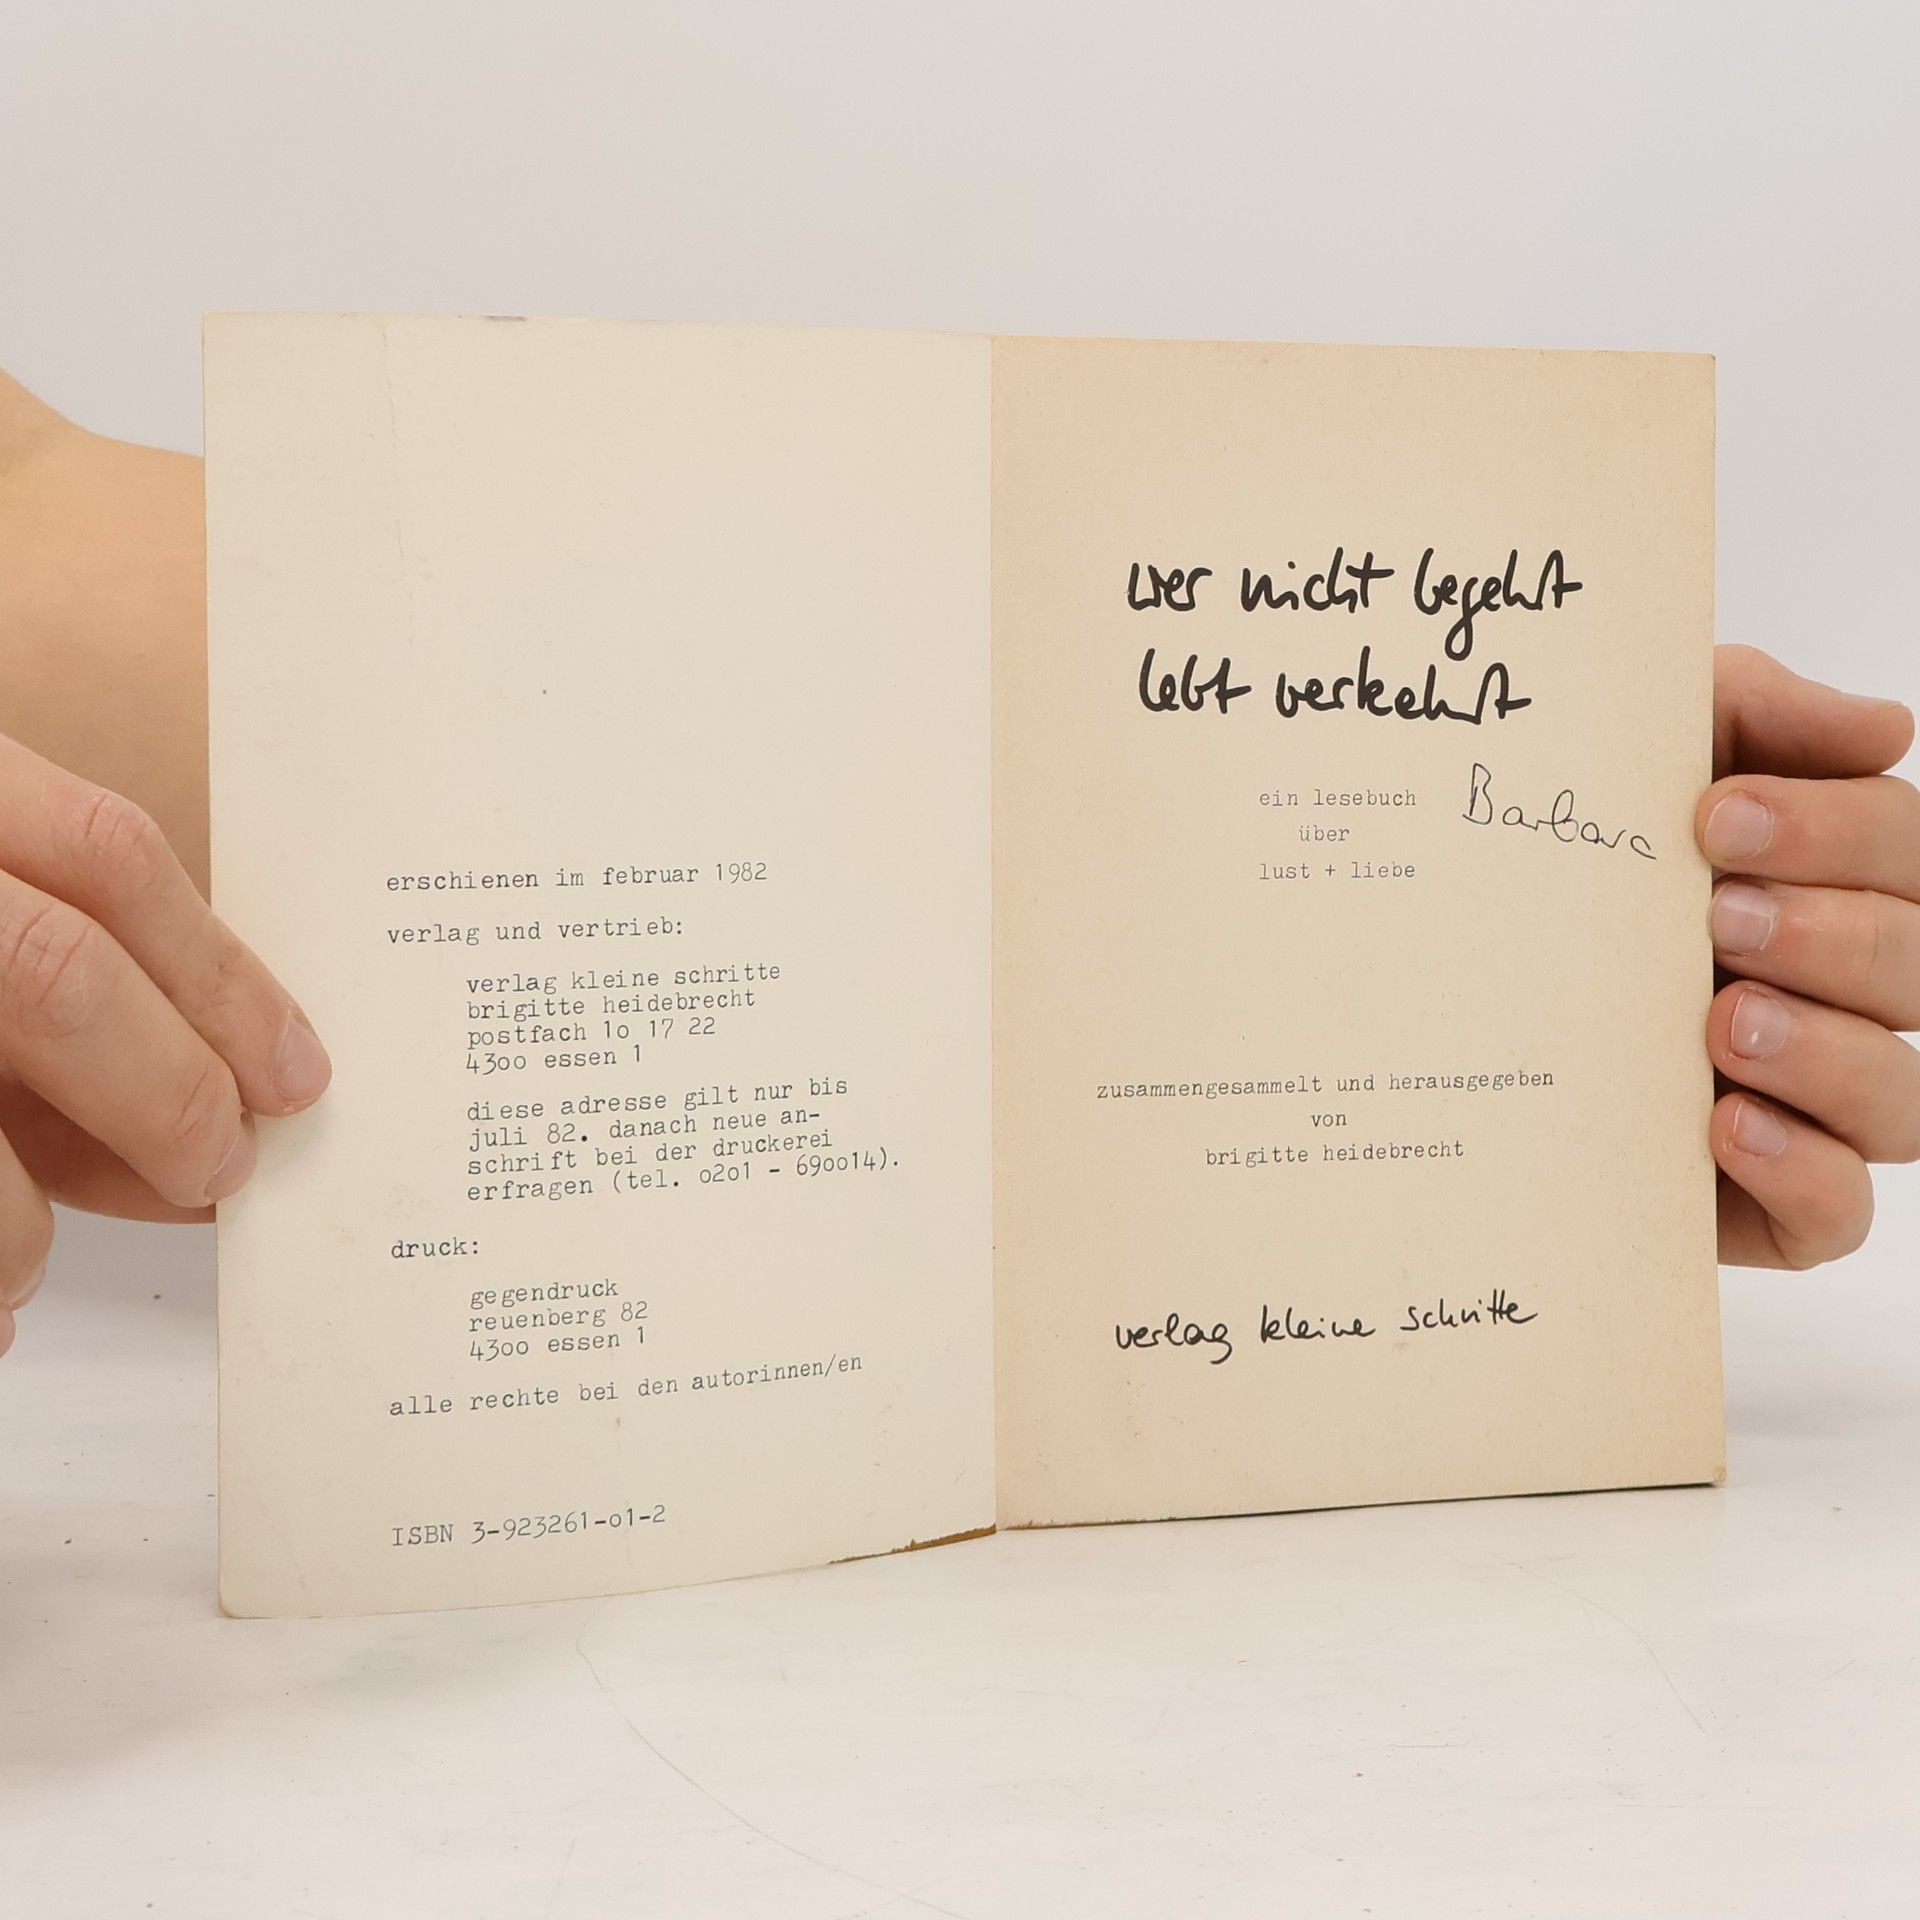 erschienen im februar 1982
verlag und vertrieb:
verlag kleine schritte
brigitte heidebrecht
postfach 1o 17 22
43oo essen 1
diese adresse gilt nur bis
juli 82. danach neue an-
schrift bei der druckerei
erfragen (tel. o2o1 - 69oo14).
druck:
gegendruck
reuenberg 82
43oo essen 1
alle rechte bei den autorinnen/en
ISBN 3-923261-o1-2
wer nicht begehrt
lebt verkehrt
ein lesebuch
über
lust + liebe
Barbara
zusammengesammelt und herausgegeben
von
brigitte heidebrecht
verlag kleine schritte